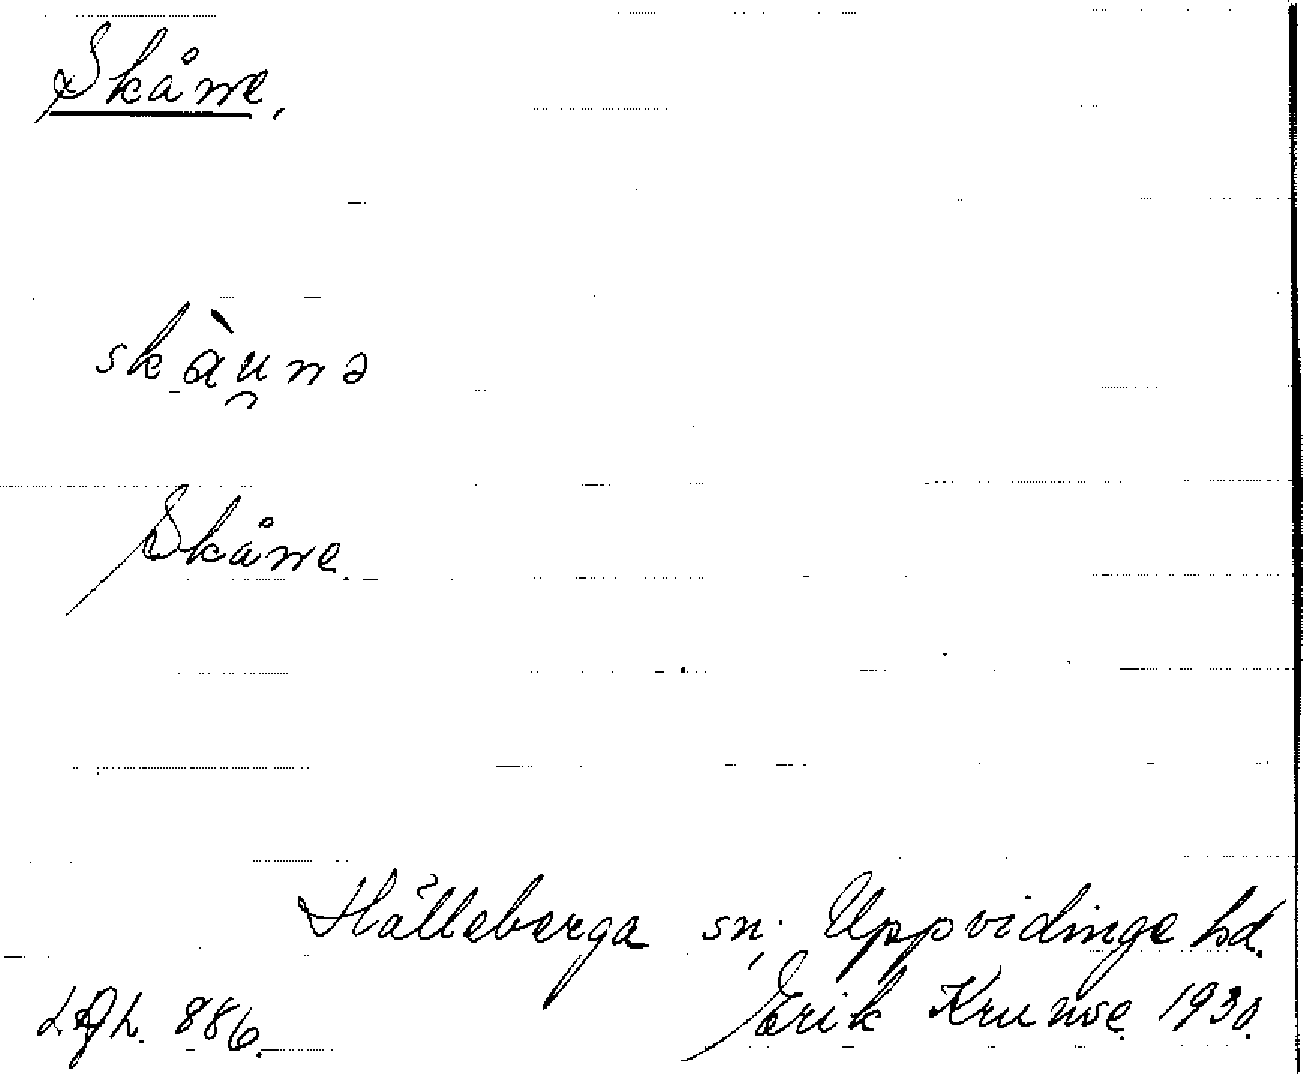 Skåne.
skàu̯nə
Skåne.
Hälleberga sn, Uppvidinge hd.
Erik Kruuse 1930.
886.